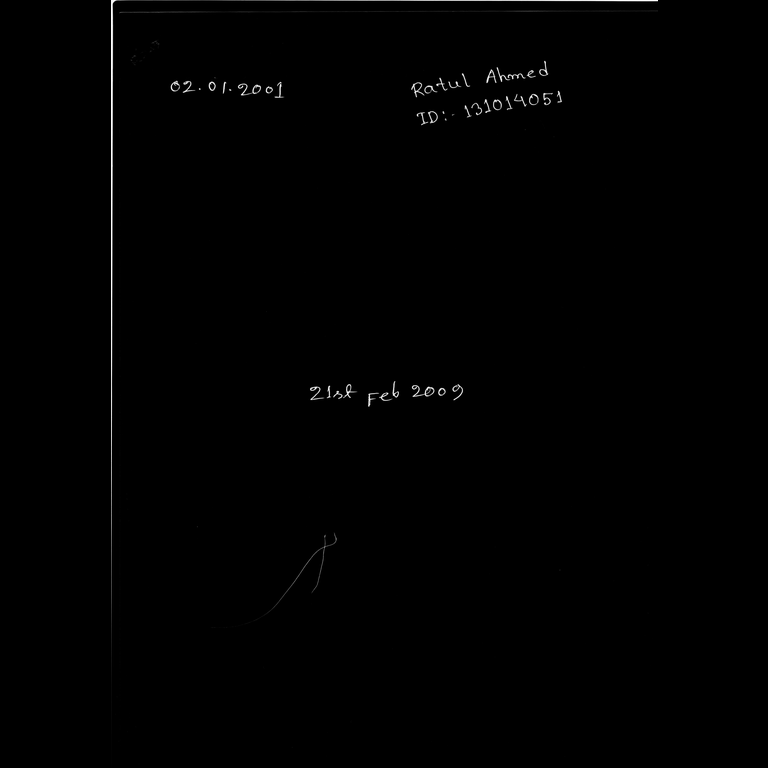 02.01.2001
Ratul Ahmed
ID:- 131014051
21st Feb 2009